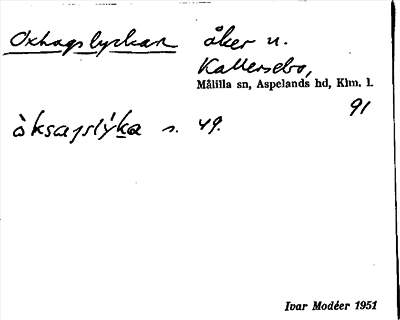 Oxhagslyckan åker u.
Kallersebo,
Målilla sn, Aspelands hd, Klm. l.
91
òksagslýka s. 49.
Ivar Modéer 1951